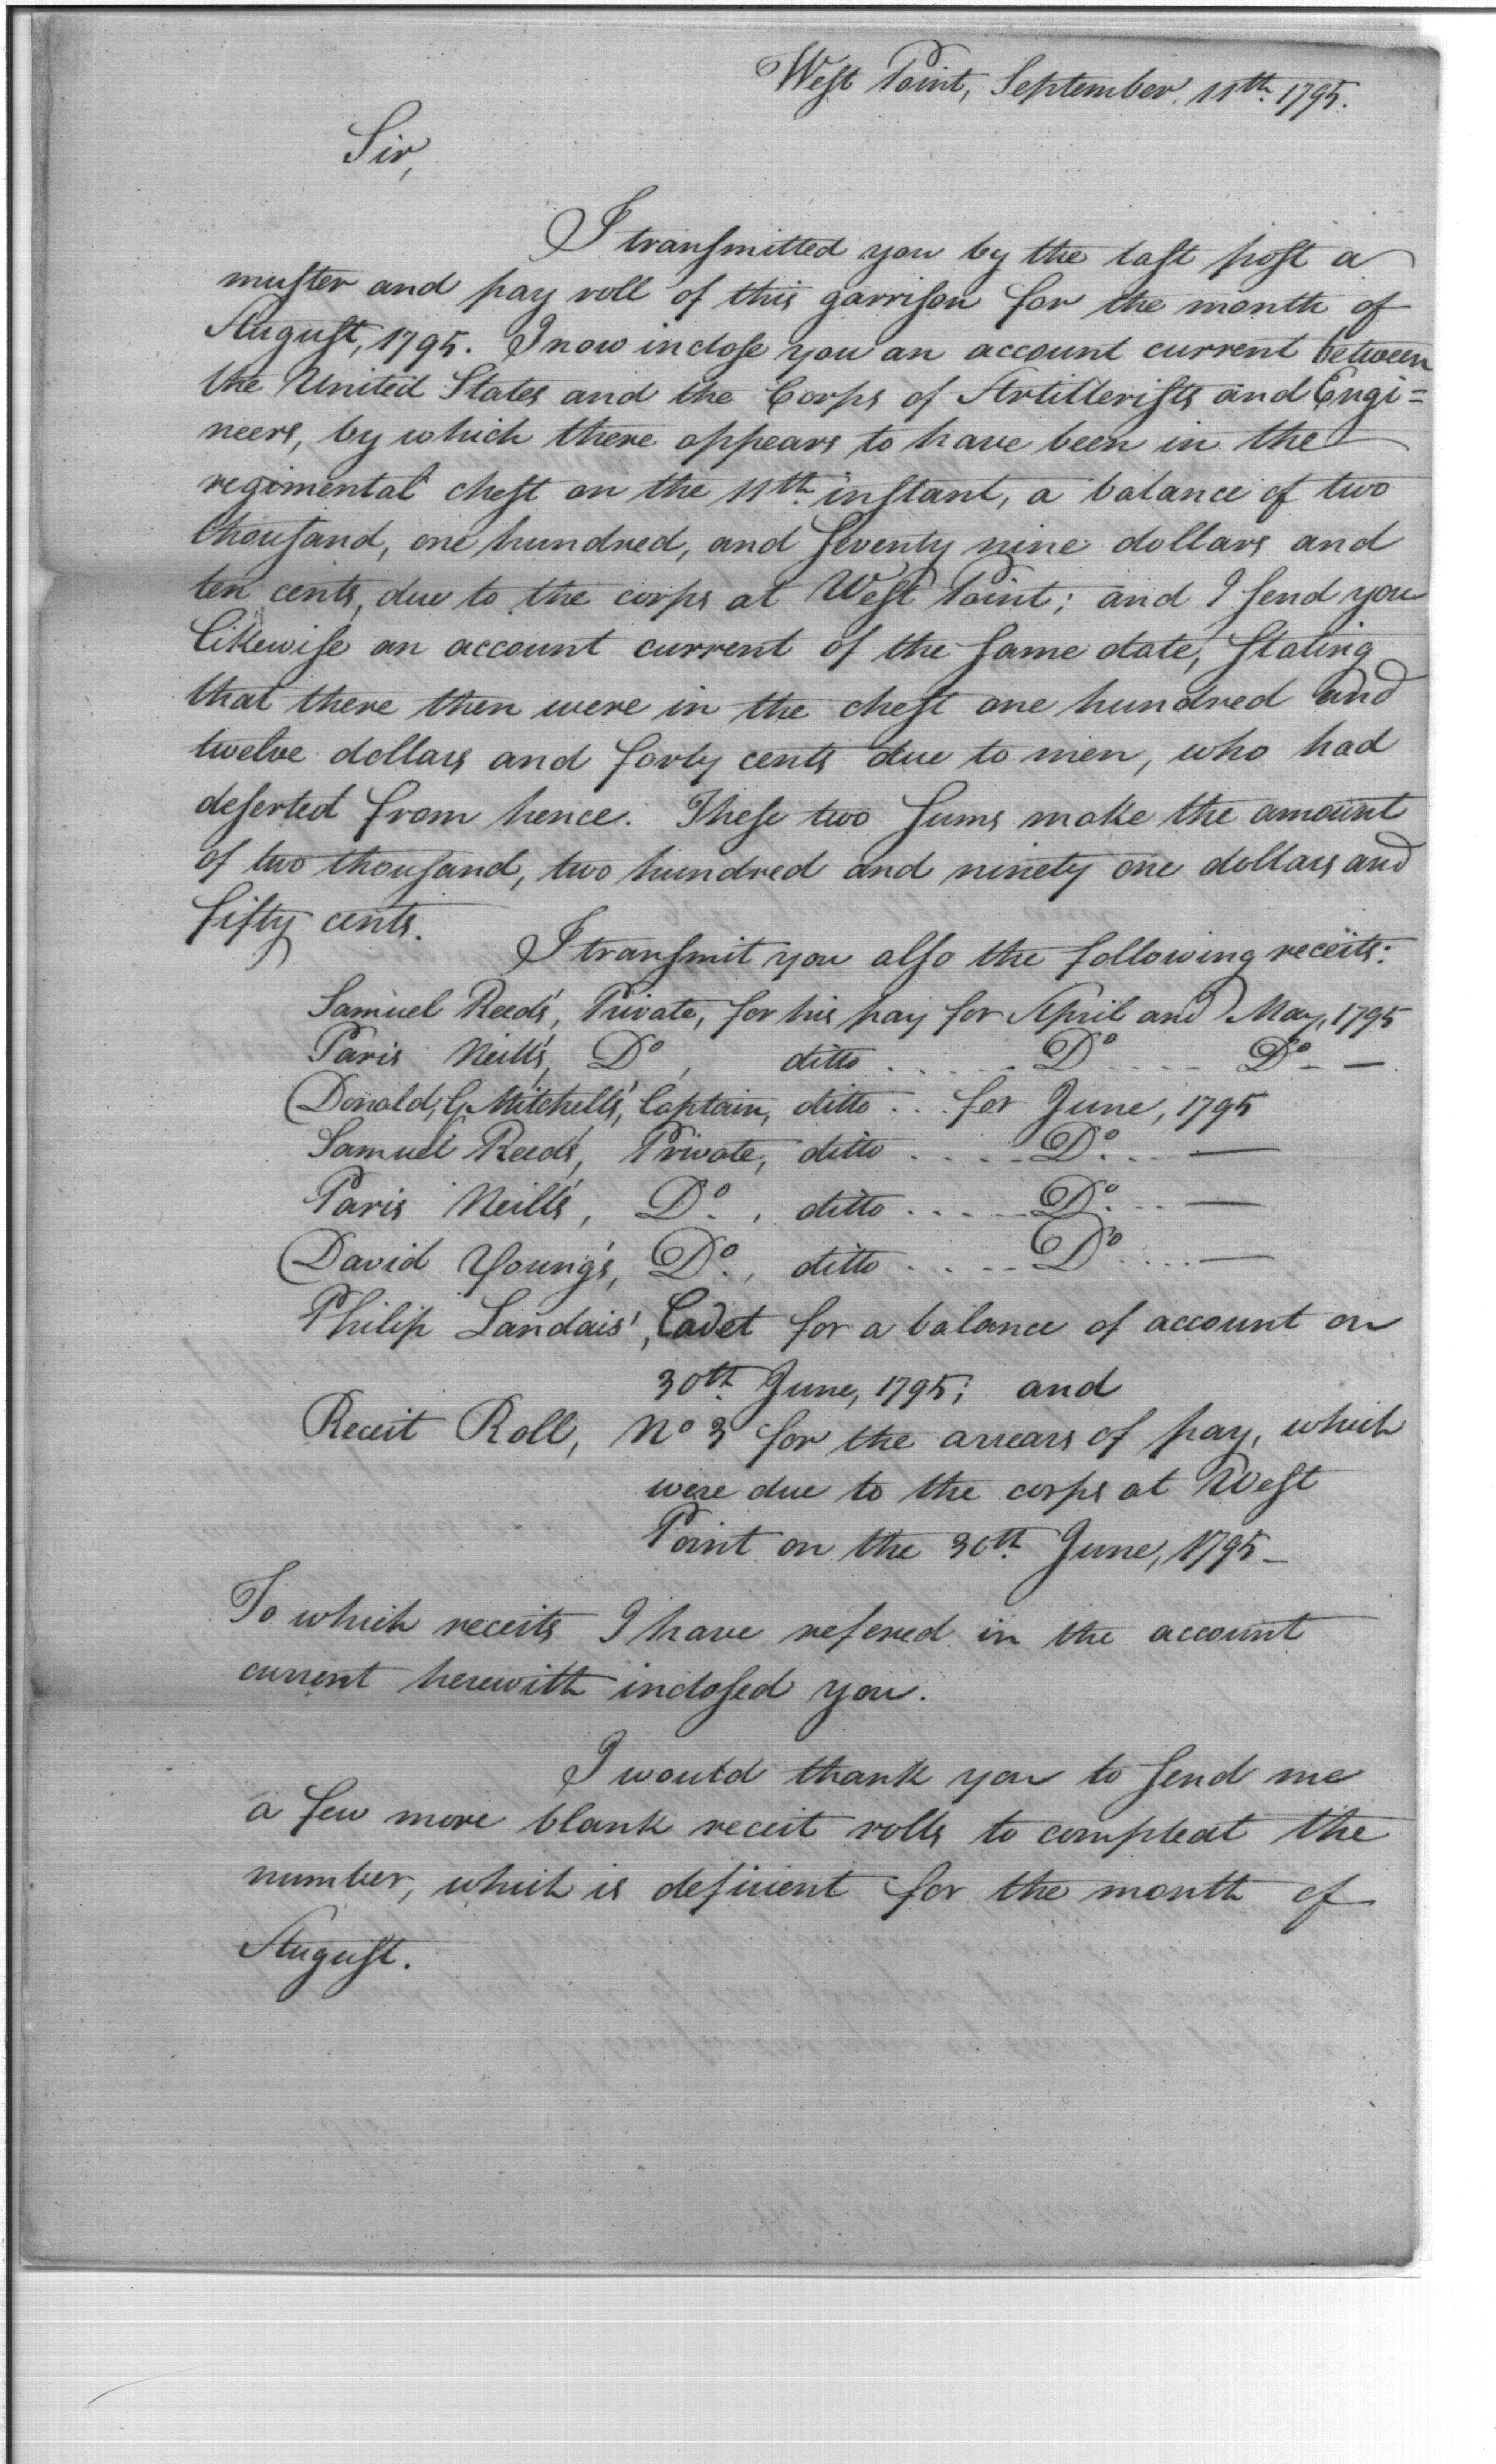 West Point, September, 11th. 1795.
Sir,
I transmitted you by the last post a
muster and pay roll of this garrison for the month of
August, 1795. I now inclose you an account current between
the United States and the Corps of Artillerists and Engi=
neers, by which there appears to have been in the
regimental chest on the 11th. instant, a balance of two
thousand, one hundred, and seventy nine dollars and
ten cents, due to the corps at West Point; and I send you
likewise an account current of the same date, stating
that there then were in the chest one hundred and
twelve dollars and forty cents due to men, who had
deserted from hence. These two sums make the amount
of two thousand, two hundred and ninety one dollars and
fifty cents.
I transmit you also the following receits:
Samuel Reed's, Private, for his pay for April and May, 1795
Paris Neill's, Do, ditto . . . . . Do . . . . Do - —
Donald G. Mitchell's, Captain, ditto . . . for June, 1795
Samuel Reed's, Private, ditto . . . . Do. . . —
Paris Neill's, Do., ditto . . . . Do. . . —
David Young's, Do., ditto . . . . Do . . . . —
Philip Landais', Cadet for a balance of account on
30th. June, 1795; and
Receit Roll, No 3 for the arrears of pay, which
were due to the corps at West
Point on the 30th. June, 1795 –
To which receits I have refered in the account
current herewith inclosed you.
I would thank you to send me
a few more blank receit rolls to compleat the
number, which is deficient for the month of
August.